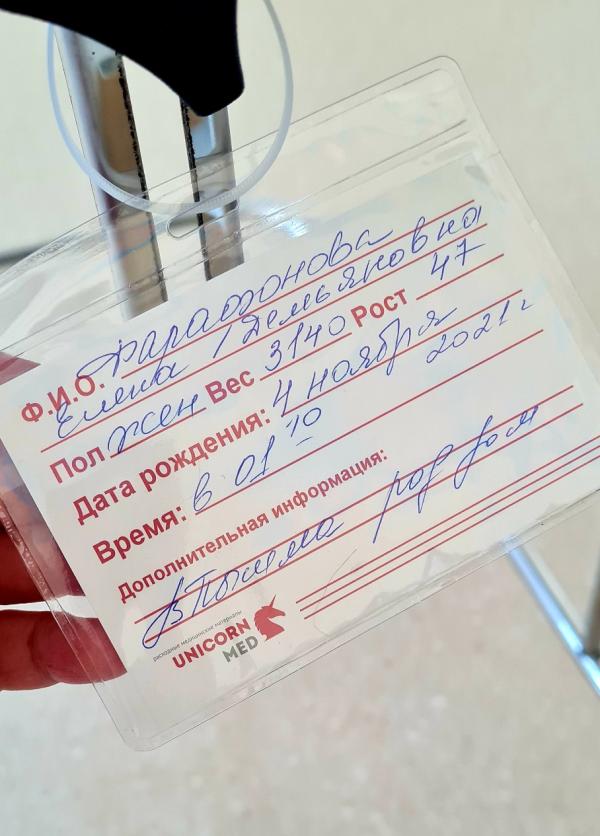 Ф.И.О. Фарафонова
Елена /Демьяновна
Пол жен Вес 3140 Рост 47
Дата рождения: 4 ноября 2021г
Время: в 01 10
Дополнительная информация:
род дом
расходные медицинские материалы
UNICORN
MED